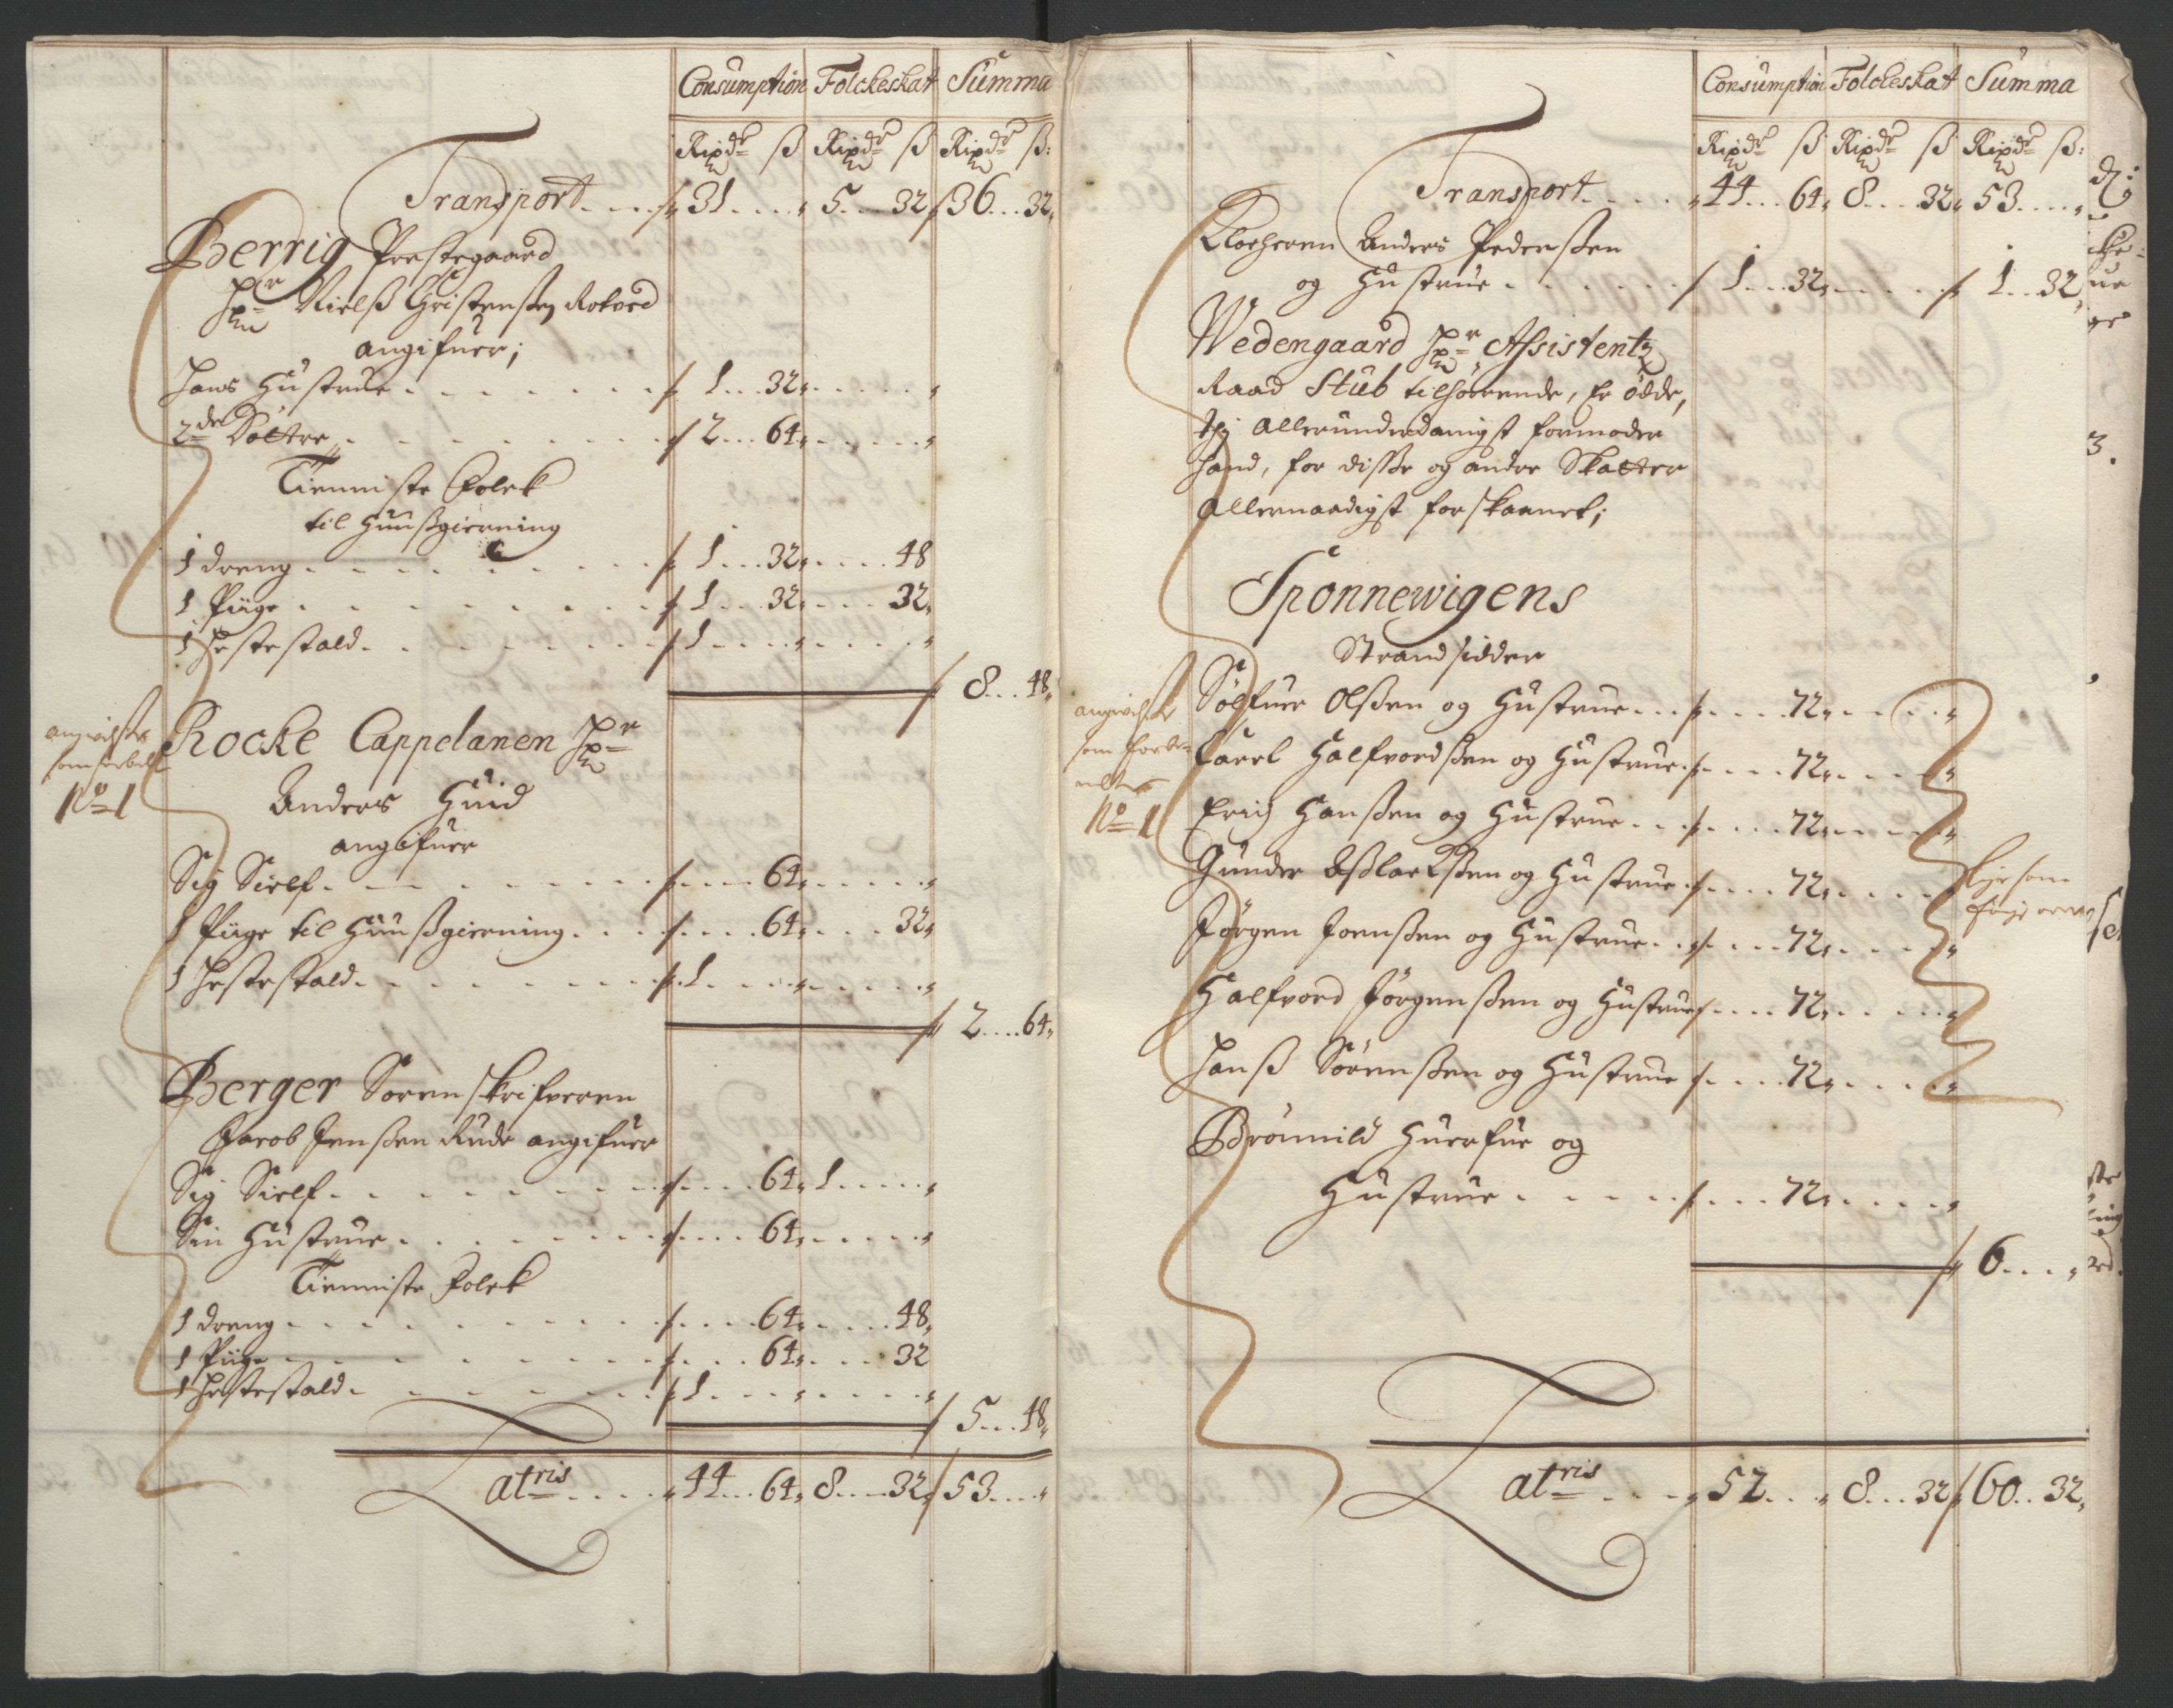 Consumption Folckeskat Summa
Rixdr ß Rixdr ß Rixdr ß:
Transport 31 5 32 36 32
Berrig Prestegaard
Hr Nielß Christensen
angifuer;
Hans Hustrue 1 32
2de Döttre 2 64
Tienniste Folck
til Huußgierning
1 dreng 1 32 48
1 Piige 1 32 32
1 Hestestald 1
8 48
Rocke Cappelanen Hr
Anders Huid
angifuer
Sig Sielf 64
1 Piige til Huußgierning 64 32
1 Hestestald 1
2 64
angifuelse
som forbelt
No 1
Berger Sorenskrifveren
Jacob Jenßen Rude angifuer
Sig Sielf 64 1
Sin Hustrue 64
Tienniste Folck
1 dreng 64 48
1 Piige 64 32
1 Hestestald 1
5 48
atris 44 64 8 32 53
Consumption Folckeskat Summa
Rixdr ß Rixdr ß Rixdr ß:
Transport 44 64 8 32 53
Klocheren Anders Pederßen
og Hustrue 1 32 1 32
Wedengaard Hr Assistentz
Raad Stub tilhörende, Er öde,
thi allerunderdanigst formoder
hand, for disse og andre Skatter
allernaadigst forskaanet;
Sponnewigens
Strandsidder
Sölfuer Olßen og Hustrue 72
Carel Halfvordßen og Hustrue 72
Erich Hanßen og Hustrue 72
Gunder Aßlackßen og Hustrue 72
Jörgen Joenßen og Hustrue 72
Halfvord Jörgenßen og Hustrue 72
Hanß Sörenßen og Hustrue 72
Brönnild og
Hustrue 72
6
som
No 1
atris 52 8 32 60 32